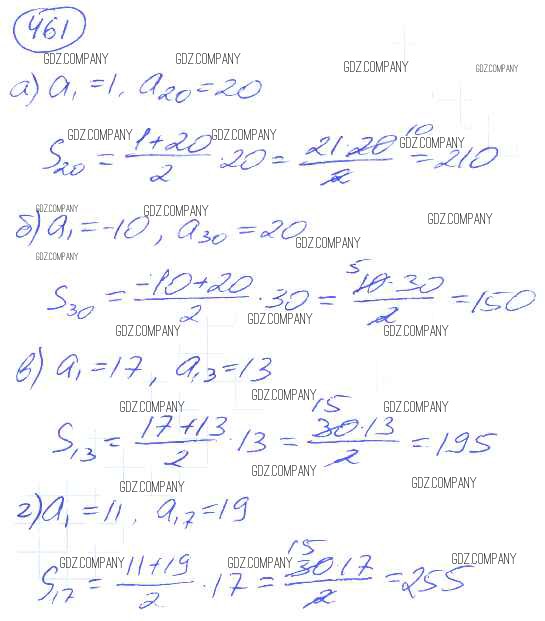 461
GDZ.COMPANY GDZ.COMPANY GDZ.COMPANY GDZ.COMPANY
а) a₁ = 1, a₂₀ = 20
GDZ.COMPANY GDZ.COMPANY GDZ.COMPANY
S₂₀ = (1+20)/2 · 20 = (21·20)/2 10 = 210
GDZ.COMPANY GDZ.COMPANY GDZ.COMPANY
б) a₁ = -10, a₃₀ = 20
GDZ.COMPANY GDZ.COMPANY
S₃₀ = (-10+20)/2 · 30 = 5 (10·30)/2 = 150
GDZ.COMPANY GDZ.COMPANY GDZ.COMPANY
в) a₁ = 17, a₁₃ = 13
GDZ.COMPANY GDZ.COMPANY GDZ.COMPANY
S₁₃ = (17+13)/2 · 13 = 15 (30·13)/2 = 195
GDZ.COMPANY GDZ.COMPANY GDZ.COMPANY
г) a₁ = 11, a₁₇ = 19
GDZ.COMPANY GDZ.COMPANY GDZ.COMPANY
S₁₇ = (11+19)/2 · 17 = 15 (30·17)/2 = 255